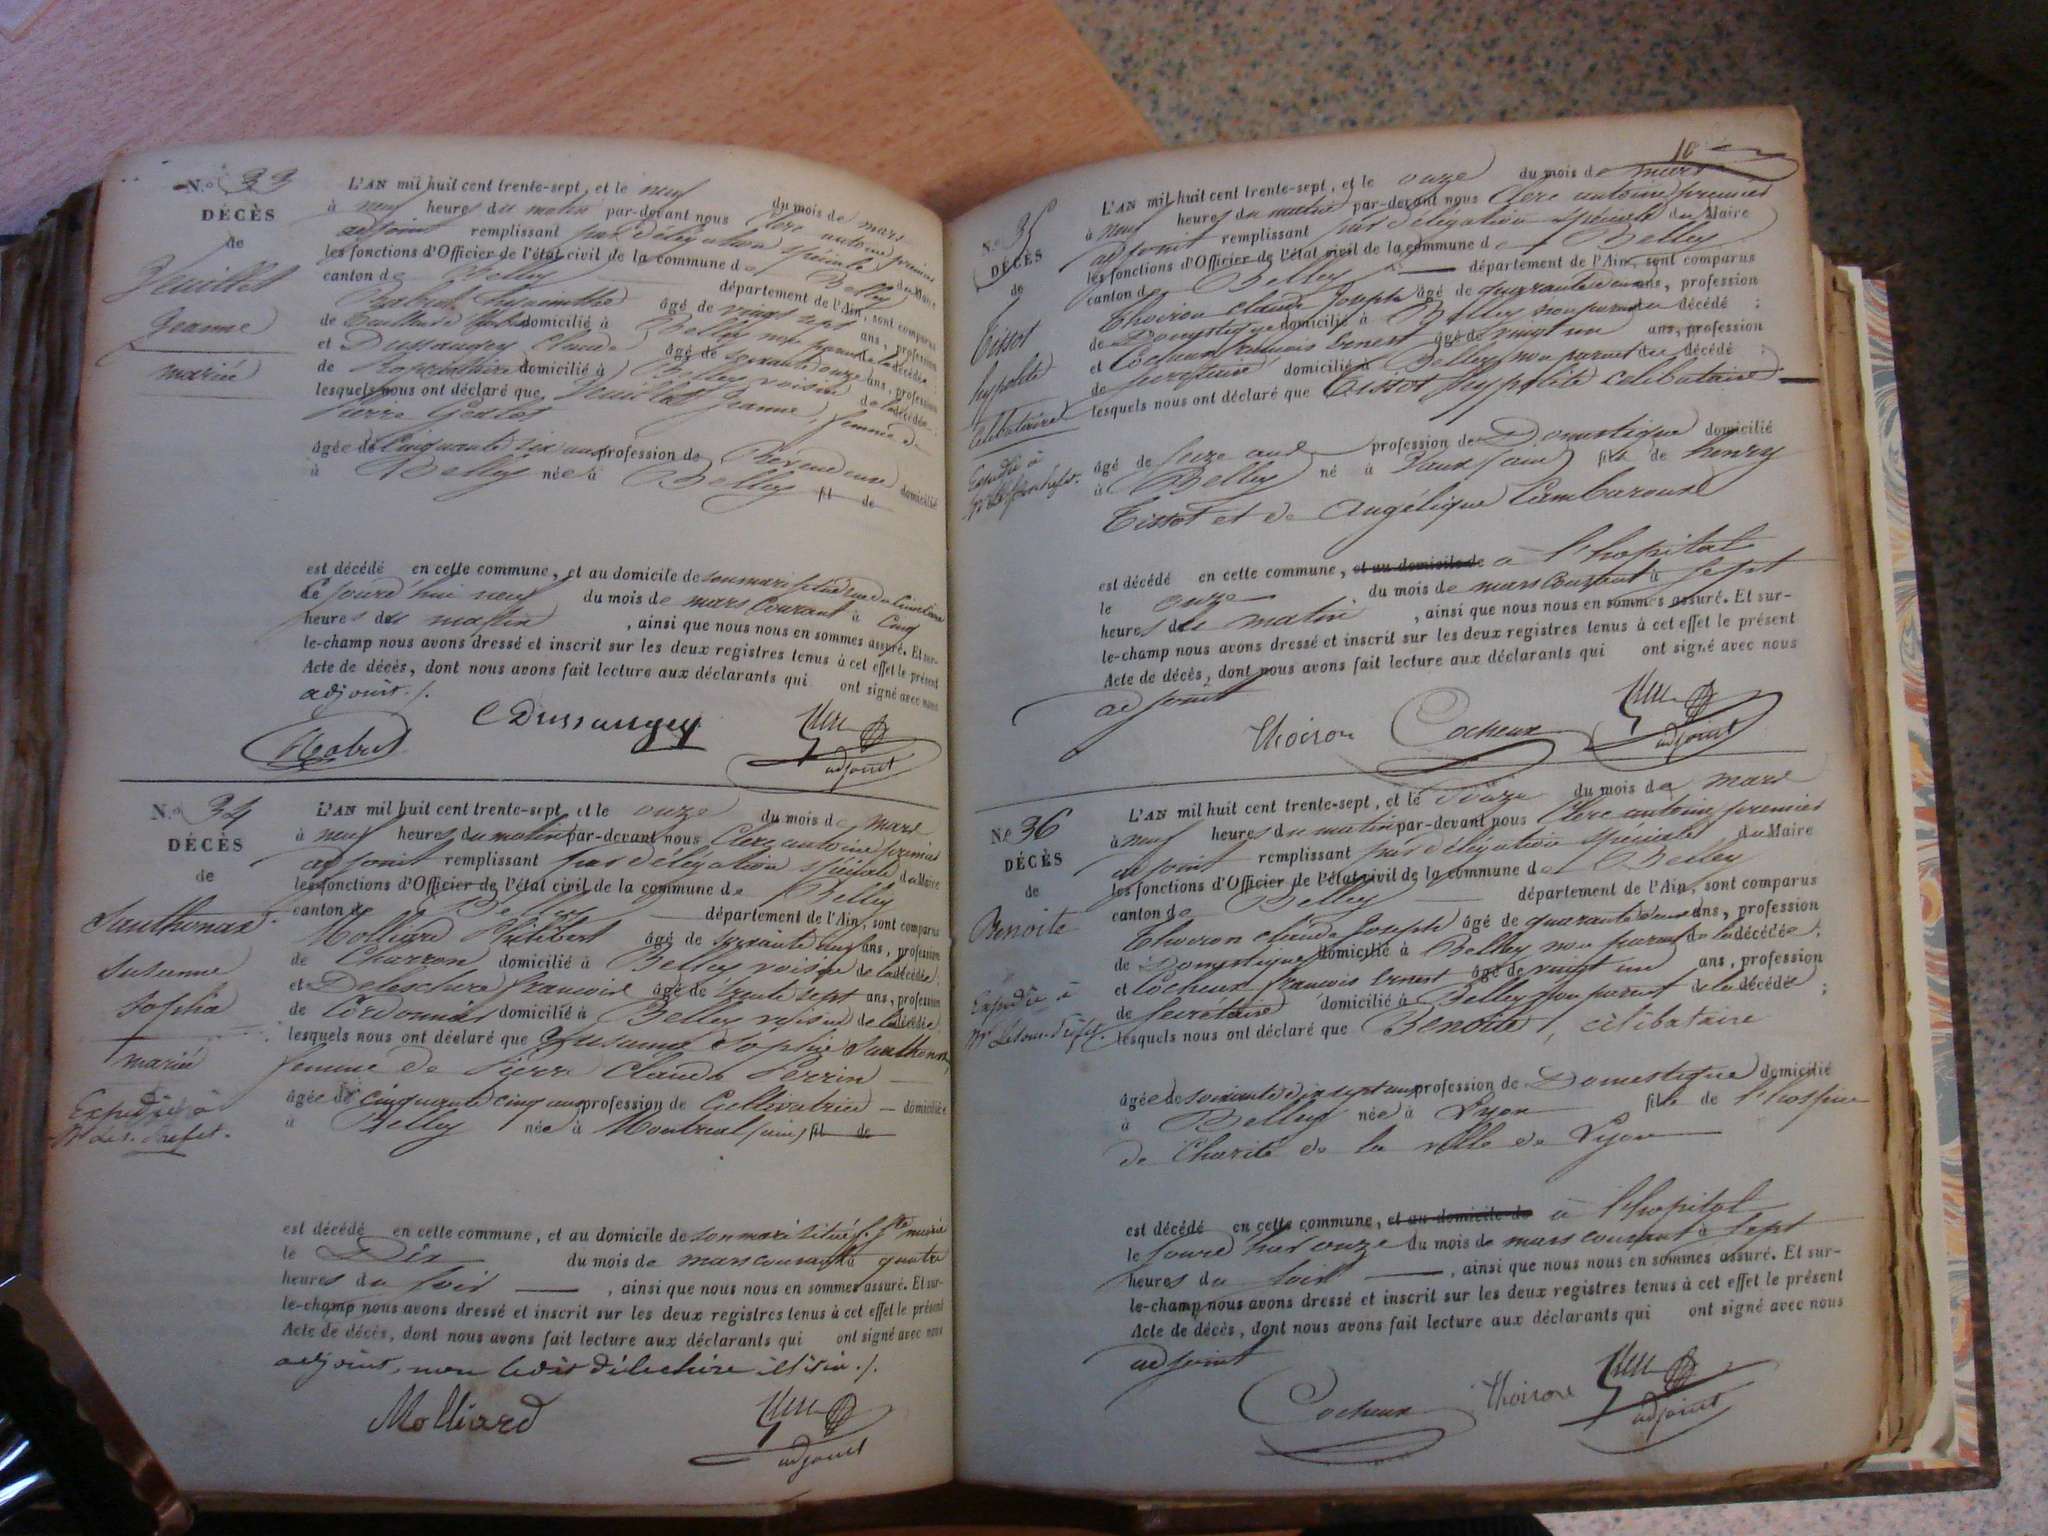 N.o 33
DÉCÈS
de
Veuillet
Jeanne
mariée
L'AN mil huit cent trente-sept, et le neuf du mois de mars
à neuf heures du matin par-devant nous Clerc antoine premier
adjoint remplissant par délégation spéciale du Maire
les fonctions d'Officier de l'état civil de la commune de Belley
canton de Belley département de l'Ain, sont comparus
hyacinthe âgé de vingt sept ans, profession
de domicilié à Belley non parent de la décédée
et Dussaugey Claude âgé de soixante onze ans, profession
de domicilié à Belley voisin de la décédée
lesquels nous ont déclaré que Veuillet Jeanne, femme de
Pierre
âgée de Cinquante six ans profession de domicilié
à Belley née à Belley fil de
est décédé en cette commune, et au domicile de son mari situé rue du
le jourd'hui neuf du mois de mars Courant à Cinq
heures du matin, ainsi que nous nous en sommes assuré. Et sur-
le-champ nous avons dressé et inscrit sur les deux registres tenus à cet effet le présent
Acte de décès, dont nous avons fait lecture aux déclarants qui ont signé avec nous
adjoint ./.
C Dussaugey
adjoint
N.o 34
DÉCÈS
de
Santhonax
Susanne
Sophie
mariée
Expédié à
Mr Le s. Préfet.
L'AN mil huit cent trente-sept, et le onze du mois de mars
à neuf heures du matin par-devant nous Clerc antoine premier
adjoint remplissant par délégation spéciale du Maire
les fonctions d'Officier de l'état civil de la commune de Belley
canton de Belley département de l'Ain, sont comparus
Molliard Philibert âgé de soixante neuf ans, profession
de Charron domicilié à Belley voisin de la décédée;
et Deleschire francois âgé de trente sept ans, profession
de Cordonnier domicilié à Belley voisin de la décédée;
lesquels nous ont déclaré que Susanne Sophie Santhonax,
femme de Pierre Claude Perrin
âgée de cinquante cinq ans profession de Cultivatrice domiciliée
à Belley née à Montreal (ain) fil de
est décédé en cette commune, et au domicile de son mari situé f. Ste marie
le Dix du mois de mars courant à quatre
heures du soir, ainsi que nous nous en sommes assuré. Et sur-
le-champ nous avons dressé et inscrit sur les deux registres tenus à cet effet le présent
Acte de décès, dont nous avons fait lecture aux déclarants qui ont signé avec nous
adjoint, non ledit délechire ./.
Molliard
adjoint
18
N.o 35
DÉCÈS
de
Tissot
hypolite
Celibataire
Expédié à
L'AN mil huit cent trente-sept, et le onze du mois de mars
à neuf heures du matin par-devant nous Clerc antoine premier
adjoint remplissant par délégation spéciale du Maire
les fonctions d'Officier de l'état civil de la commune de Belley
canton de Belley département de l'Ain, sont comparus
Thoiron claude Joseph âgé de quarante deux ans, profession
de Domestique domicilié à Belley non parent du décédé;
et Cocheux francois Ernest âgé de vingt un ans, profession
de Secrétaire domicilié à Belley non parent du décédé;
lesquels nous ont déclaré que Tissot hypolite célibataire
âgé de seize ans profession de Domestique domicilié
à Belley né à fils de henry
Tissot et de Angélique
est décédé en cette commune, et au domicile de à l'hopital
le onze du mois de mars courant à sept
heures de matin, ainsi que nous nous en sommes assuré. Et sur-
le-champ nous avons dressé et inscrit sur les deux registres tenus à cet effet le présent
Acte de décès, dont nous avons fait lecture aux déclarants qui ont signé avec nous
adjoint
Thoiron Cocheux
adjoint
N.o 36
DÉCÈS
de
Benoite
Expédié à
Mr Le sous-Préfet.
L'AN mil huit cent trente-sept, et le Douze du mois de mars
à neuf heures du matin par-devant nous Clerc antoine premier
adjoint remplissant par délégation spéciale du Maire
les fonctions d'Officier de l'état civil de la commune de Belley
canton de Belley département de l'Ain, sont comparus
Thoiron claude Joseph âgé de quarante deux ans, profession
de Domestique domicilié à Belley non parent de la décédée;
et Cocheux francois Ernest âgé de vingt un ans, profession
de Secrétaire domicilié à Belley non parent de la décédée;
lesquels nous ont déclaré que Benoite, célibataire
âgée de soixante dix sept ans profession de Domestique domicilié
à Belley née à Lyon fille de l'hospice
de Charité de la ville de Lyon
est décédé en cette commune, et au domicile de à l'hopital
le jourd'hier onze du mois de mars courant à sept
heures du soir, ainsi que nous nous en sommes assuré. Et sur-
le-champ nous avons dressé et inscrit sur les deux registres tenus à cet effet le présent
Acte de décès, dont nous avons fait lecture aux déclarants qui ont signé avec nous
adjoint
Cocheux Thoiron
adjoint